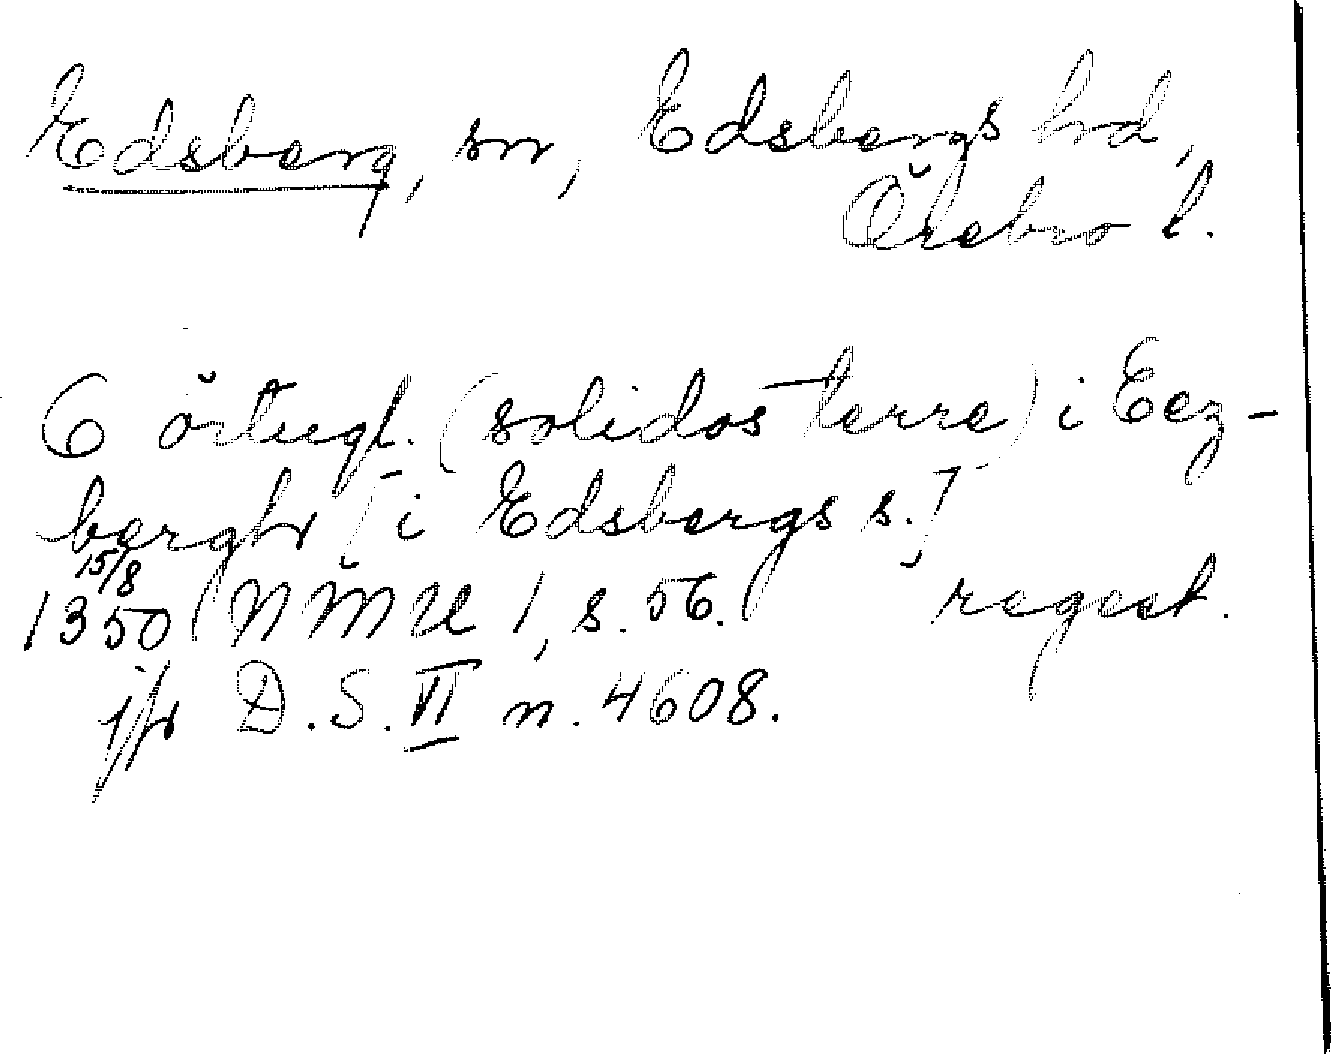 Edsberg, sn, Edsbergs hd,
Örebro l.
6 örtugl. (solidos terre) i Eez-
bergh [i Edsbergs s.]
15/8
1350 NMU 1, s. 56. regest.
jfr D.S. VI n. 4608.